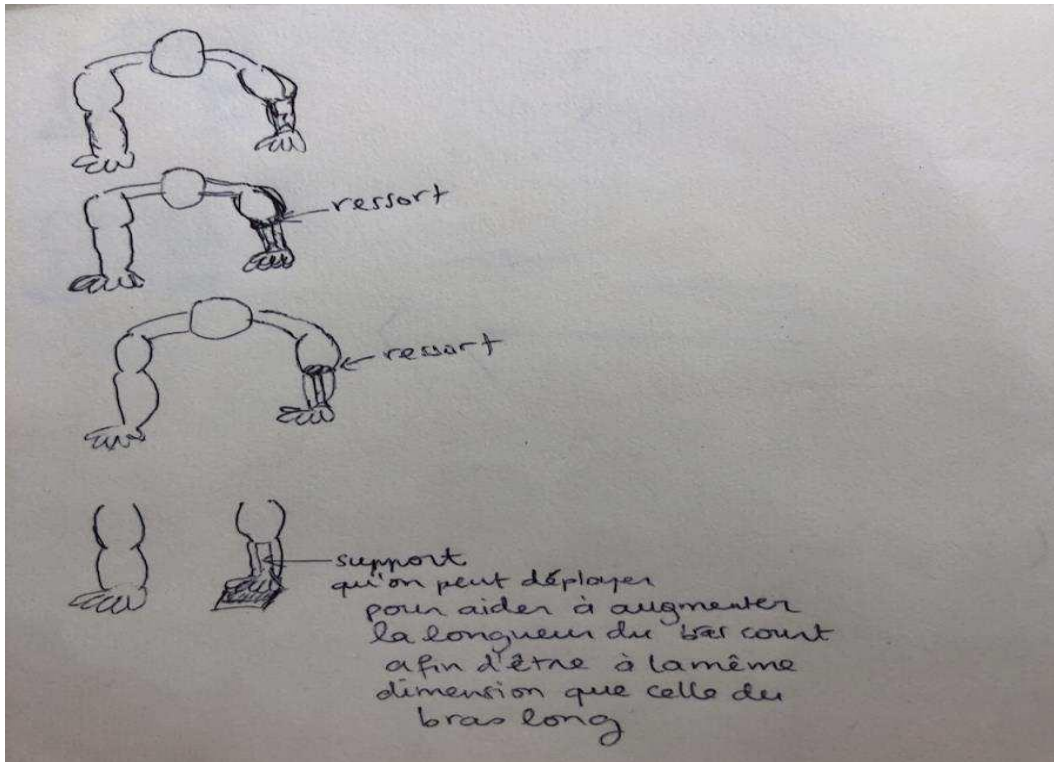 ressort
ressort
support
qu'on peut déployer
pour aider à augmenter
la longueur du bras court
afin d'être à la même
dimension que celle du
bras long